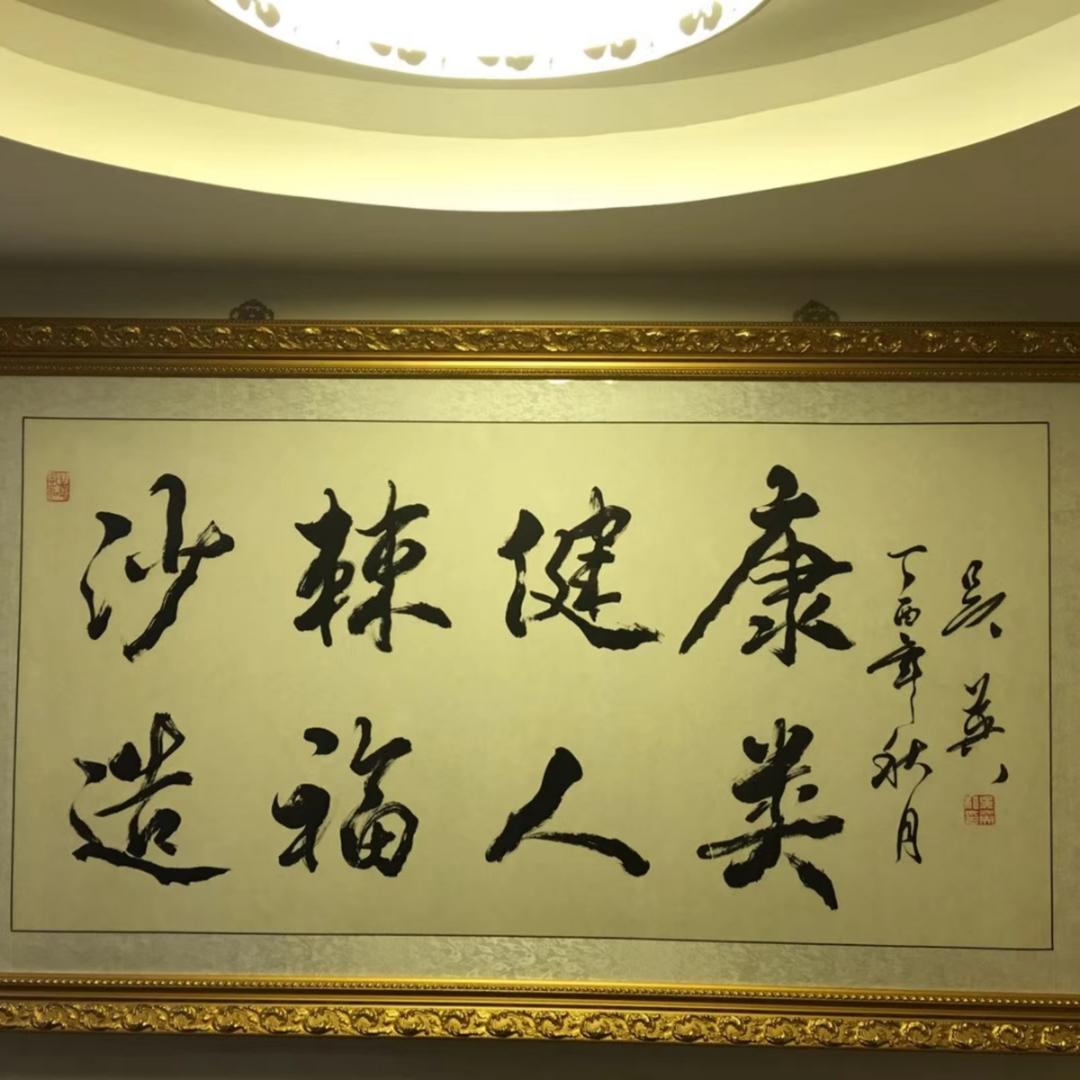 沙棘健康
造福人类
丁酉年秋月
吴英